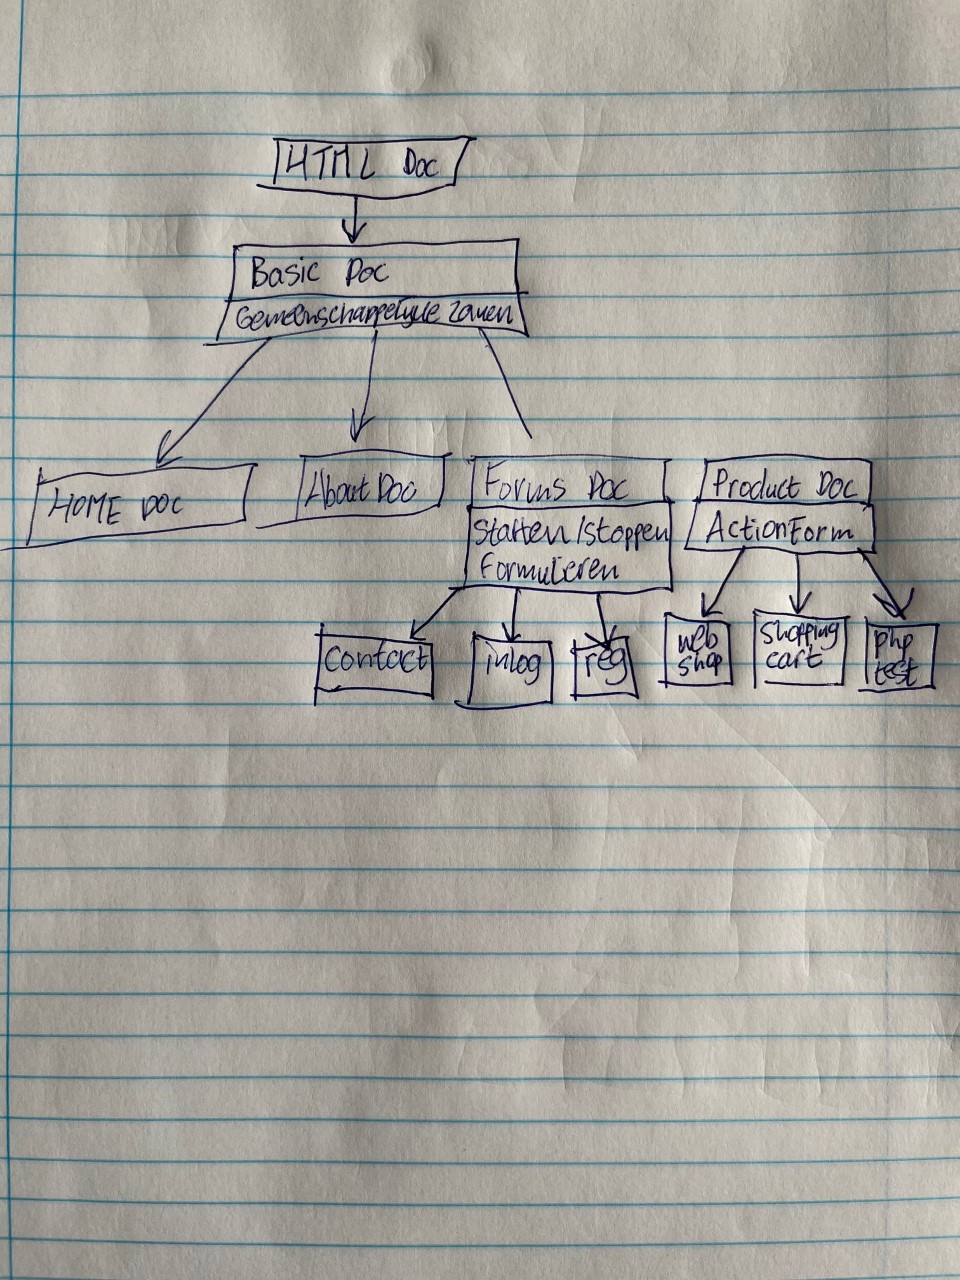 HTML Doc
Basic Doc
Gemeenschappelijke zaken
HOME DOC
About Doc
Forms Doc
Starten/stoppen
Formulieren
Product Doc
ActionForm
contact
inlog
reg
web
shop
shopping
cart
php
test